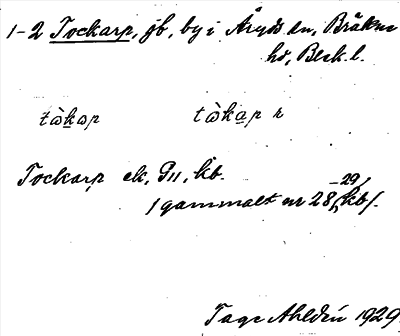 1-2 Tockarp, gb, by i Åryds sn, Bräkne
hd, Blek. l.
tòkap tòkap r
Tockarp ek. 911, kb.
/gammalt nr 28-29, kb/.
Tage Ahldén 1929.